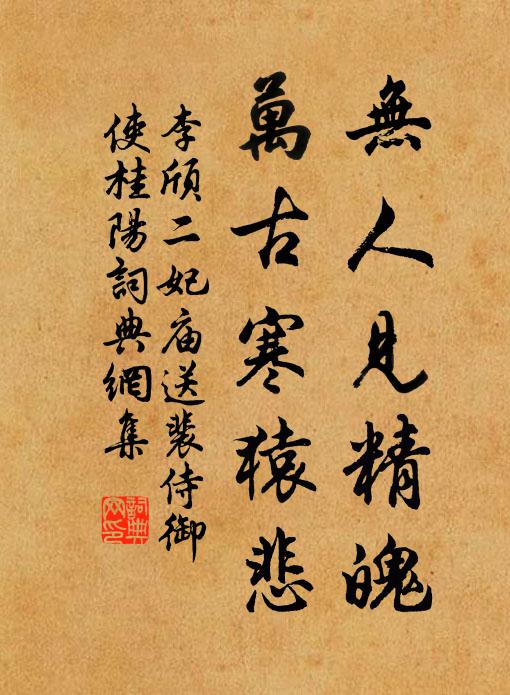 無人見精魄
萬古寒猿悲
李頎二妃庙送裴侍御
使桂陽詞典網集
詞典
网印